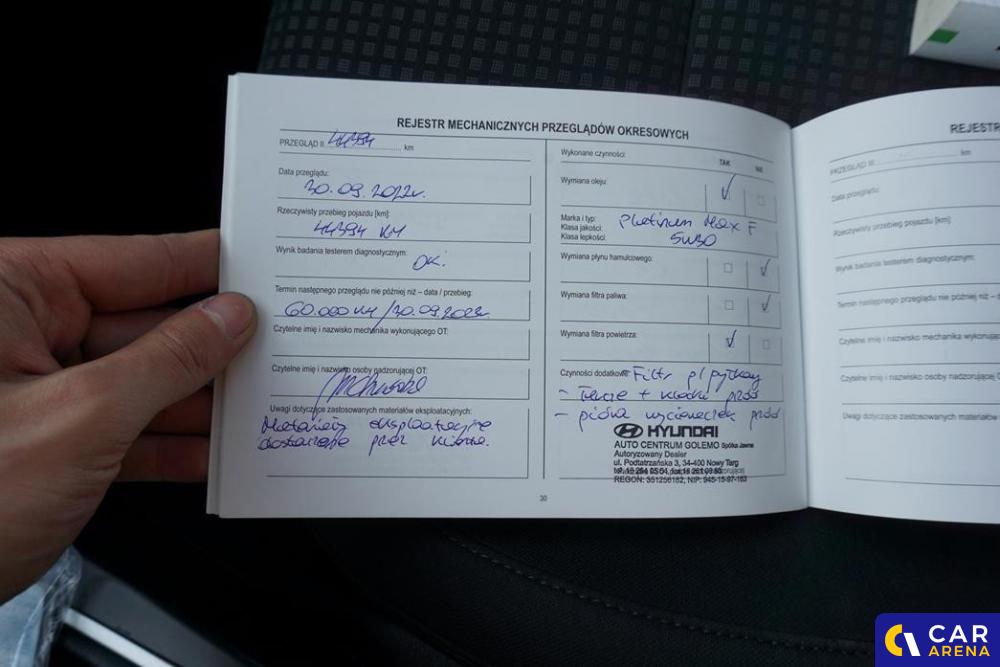 REJESTR MECHANICZNYCH PRZEGLĄDÓW OKRESOWYCH
PRZEGLĄD II. 44394 km
Data przeglądu:
30.09.2022r.
Rzeczywisty przebieg pojazdu [km]:
44394 KM
Wynik badania testerem diagnostycznym:
OK.
Termin następnego przeglądu nie później niż – data / przebieg:
60.000 KM /30.09.2022
Czytelne imię i nazwisko mechanika wykonującego OT:
Czytelne imię i nazwisko osoby nadzorującej OT:
Uwagi dotyczące zastosowanych materiałów eksploatacyjnych:
Materiały eksploatacyjne
dostarczone przez klienta.
Wykonane czynności:
TAK NIE
Wymiana oleju:
Marka i typ: Platinum Max F
Klasa jakości:
Klasa lepkości: 5W30
Wymiana płynu hamulcowego:
Wymiana filtra paliwa:
Wymiana filtra powietrza:
Czynności dodatkowe: – Filtr p/pyłkowy
– Tarcze + klocki przód
– pióra wycieraczek przód
HYUNDAI
AUTO CENTRUM GOLEMO Spółka Jawna
Autoryzowany Dealer
ul. Podtatrzańska 3, 34-400 Nowy Targ
REGON: 351256182, NIP: 945-15-97-163
30
REJESTR
PRZEGLĄD III. km
Data przeglądu:
Rzeczywisty przebieg pojazdu [km]:
Wynik badania testerem diagnostycznym:
Termin następnego przeglądu nie później niż
Czytelne imię i nazwisko mechanika
Czytelne imię i nazwisko osoby nadzorującej
Uwagi dotyczące zastosowanych materiałów
CAR
ARENA